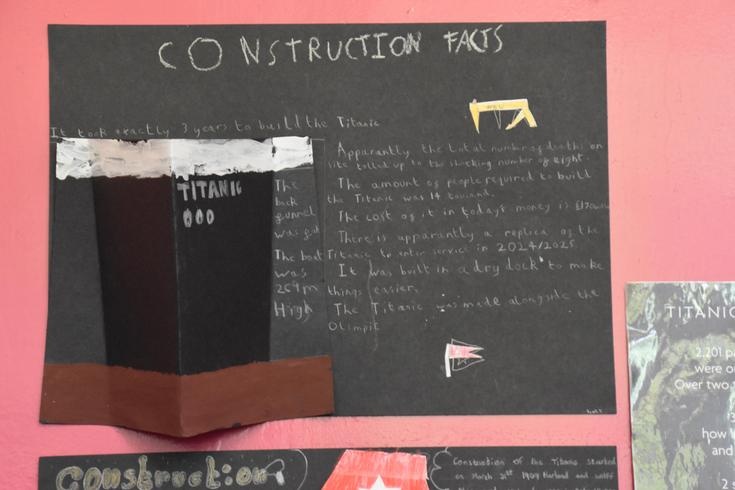 CONSTRUCTION FACTS
It took exactly 3 years to build the Titanic
TITANIC
The
back
gunnel
was
The boat
was
269m
High
Apparantly the total number of deaths on
site tolled up to the shocking number of eight.
The amount of people required to build
the Titanic was 14
The cost of it in todays money is
There is apparantly a replica of the
Titanic to enter service in 2024/2025
It was built in a dry dock to make
things easier.
The Titanic was made alongside the
Olimpic
TITANIC
2,201
were
Over two
how
and
Construction
Construction of the Titanic started
on March 31st 1909 Harland and Wolff